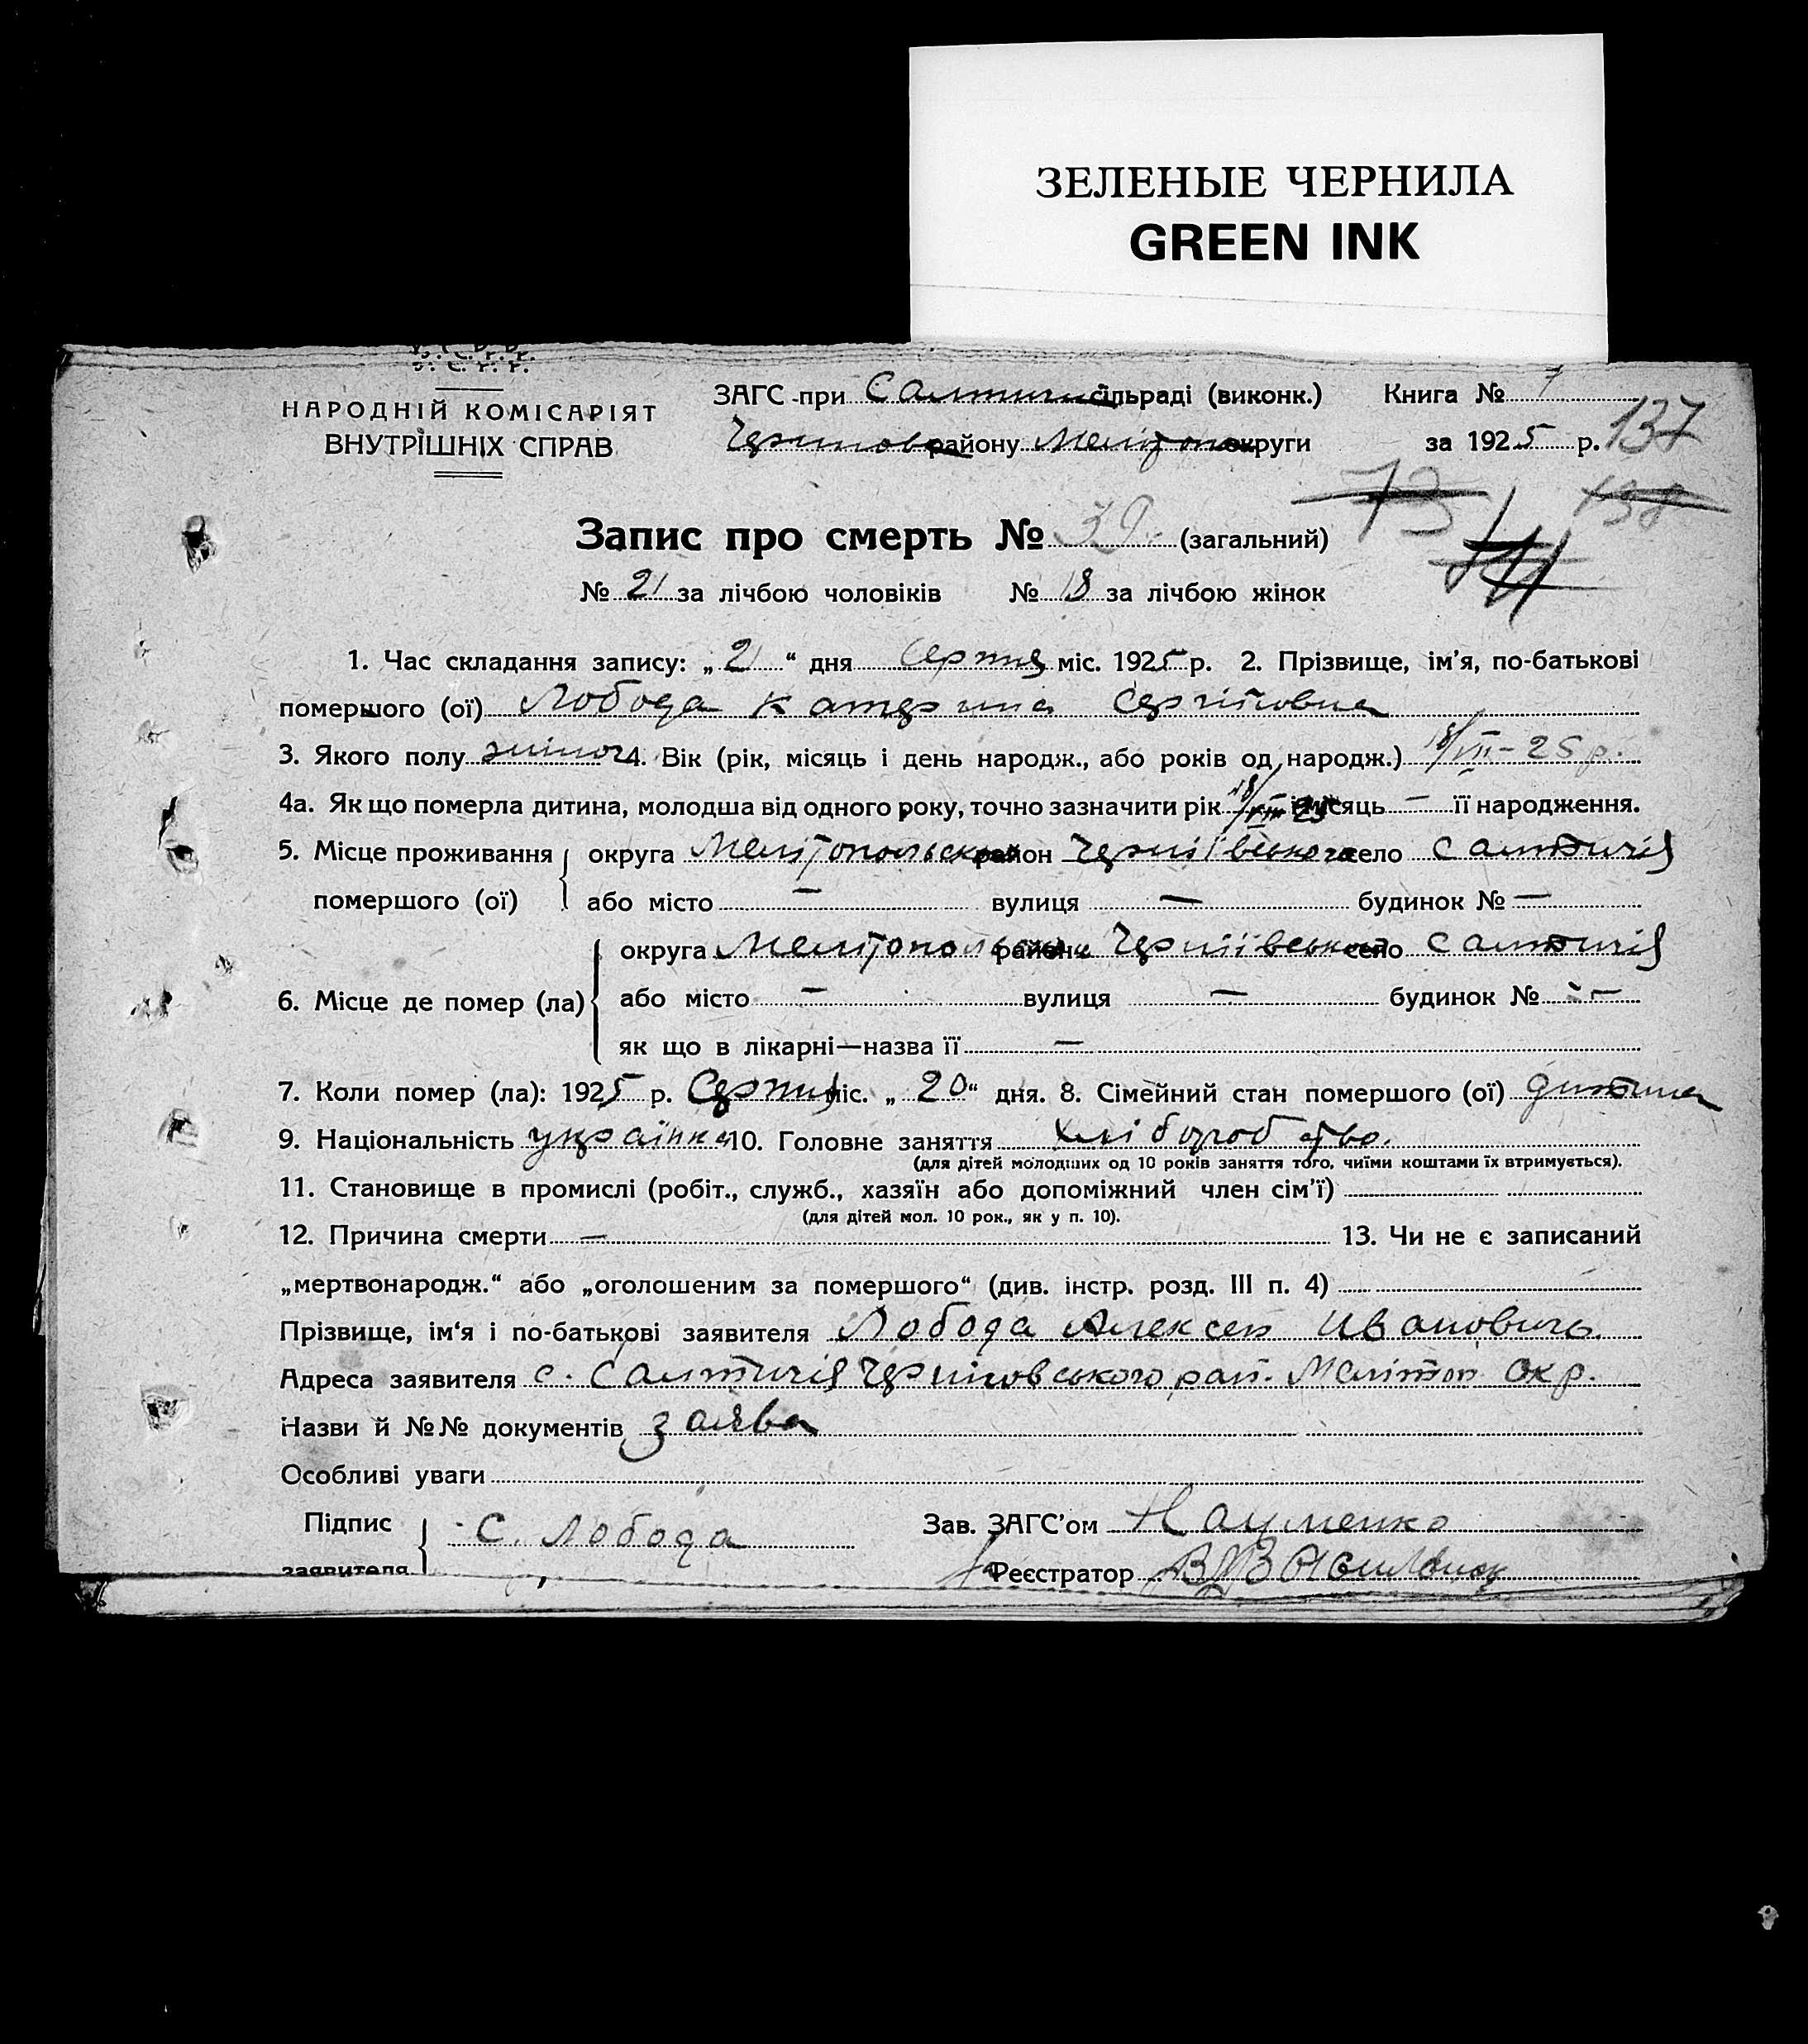 ЗЕЛЕНЫЕ ЧЕРНИЛА
GREEN INK
У.С.Р.Р.
НАРОДНІЙ КОМІСАРІЯТ
ВНУТРІШНІХ СПРАВ
ЗАГС при Салтичі сільраді (виконк.) Книга № 7
району Мелітоп округи за 1925 р. 137
73 138
Запис про смерть № 39. (загальний)
№ 21 за лічбою чоловіків № 18 за лічбою жінок
1. Час складання запису: „ 21 “ дня Серпня міс. 1925 р. 2. Прізвище, ім’я, по-батькові
помершого (ої) Лобода Катерина Сергіївна
3. Якого полу жіноч 4. Вік (рік, місяць і день народж., або років од народж.) 18/VII-25 р.
4а. Як що померла дитина, молодша від одного року, точно зазначити рік і місяць — її народження.
5. Місце проживання округа Мелітопольська район Чернігівського село Салтичія
помершого (ої) або місто — вулиця — будинок № —
округа Мелітопольська район Чернігівський село Салтичія
6. Місце де помер (ла) або місто — вулиця — будинок № —
як що в лікарні—назва її —
7. Коли помер (ла): 1925 р. Серпня міс. „ 20 “ дня. 8. Сімейний стан помершого (ої) дитина
9. Національність українка 10. Головне заняття хліборобство.
(для дітей молодших од 10 років заняття того, чиїми коштами їх втримується).
11. Становище в промислі (робіт., служб., хазяїн або допоміжний член сім’ї)
(для дітей мол. 10 рок., як у п. 10).
12. Причина смерти — 13. Чи не є записаний
„мертвонародж.“ або „оголошеним за помершого“ (див. інстр. розд. III п. 4)
Прізвище, ім‘я і по-батькові заявителя Лобода Алексей Ивановичь
Адреса заявителя с. Салтичія Черниговського рай. Мелітоп Окр.
Назви й №№ документів заява
Особливі уваги
Підпис С. Лобода Зав. ЗАГС’ом Науменко
заявителя Реєстратор